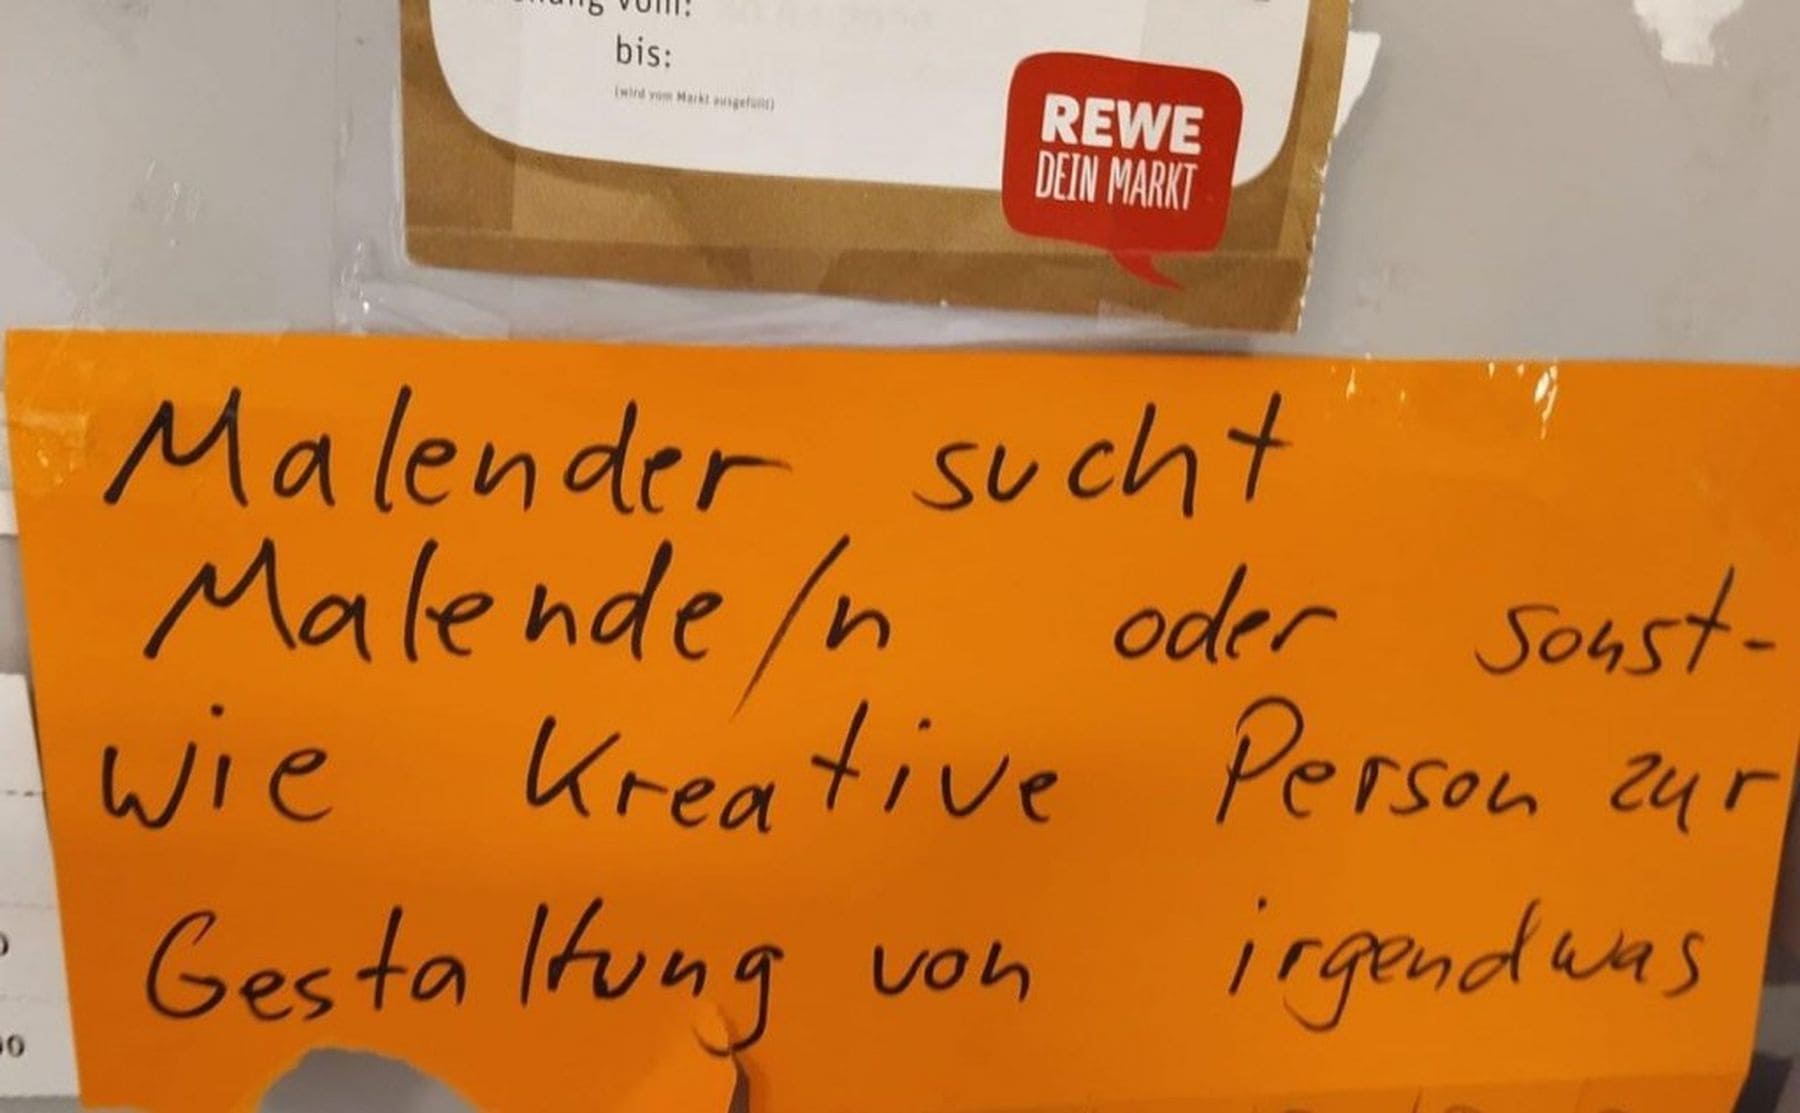 vom:
bis:
(wird vom Markt ausgefüllt)
REWE
DEIN MARKT
Malender sucht
Malende/n oder sonst-
wie Kreative Person zur
Gestaltung von irgendwas